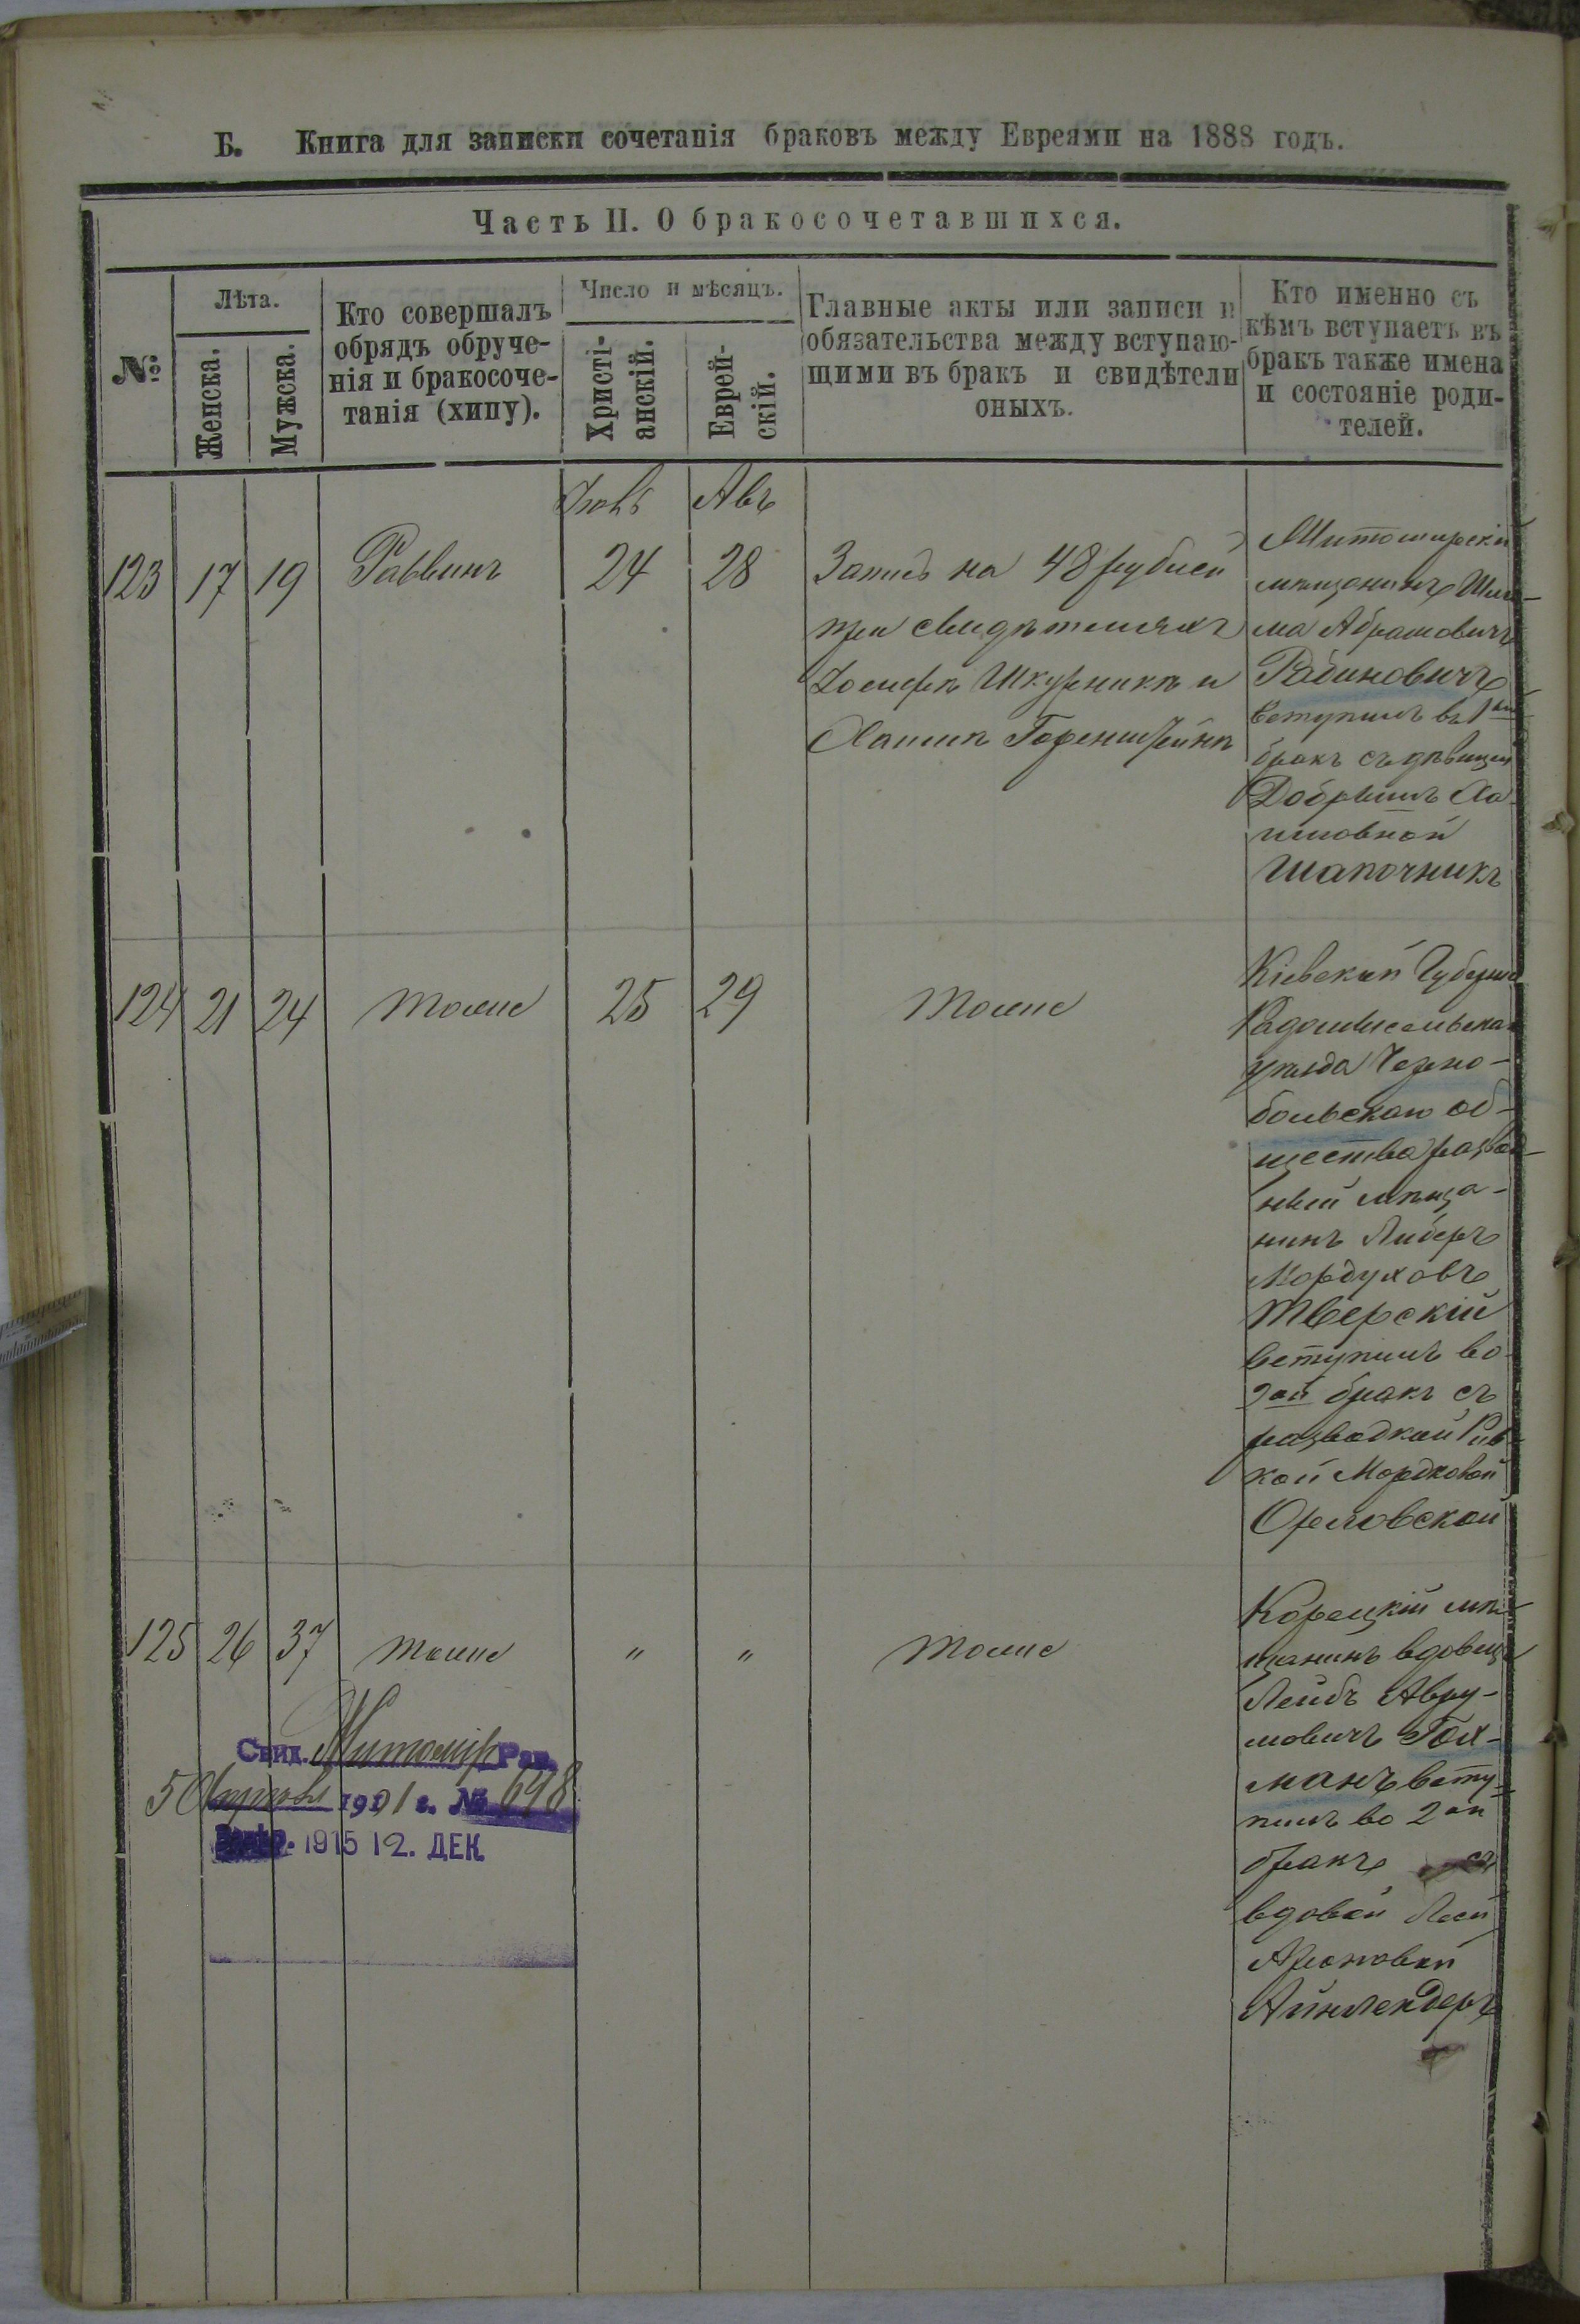 Б. Книга для записки сочетанія браковъ между Евреями на 1888 годъ.
Часть II. О бракосочетавшихся.
№
Лѣта.
Женска.
Мужска.
Кто совершалъ
обрядъ обруче-
нія и бракосоче-
танія (хипу).
Число и мѣсяцъ.
Христі-
анскій.
Еврей-
скій.
Главные акты или записи и
обязательства между вступаю-
щими въ бракъ и свидѣтели
оныхъ.
Кто именно съ
кѣмъ вступаетъ въ
бракъ также имена
и состояніе роди-
телей.
Авъ
123 17 19 Раввинъ 24 28
Запись на 48 рублей
при свидѣтеляхъ
Іосифѣ Шкурникѣ и
Хаимѣ Горенштейнѣ
Житомирскій
мѣщанинъ Шле-
ма Абрамовичъ
Рабиновичъ
вступилъ въ 1ый
бракъ съ дѣвицей
Добрышъ Ха-
имовной
Шапочникъ
124 21 24 тоже 25 29 тоже
Кіевской Губерніи
Радомысльска
уѣзда Черно-
быльскаго об-
щества развод-
ный мѣща-
нинъ Либеръ
Мордуховъ
Тверскій
вступилъ во
2ой бракъ съ
разводкой Рив-
кой Мордковой
Орловской
125 26 37 тоже " " тоже
Корецкій мѣ-
щанинъ вдовецъ
Лейбъ Авру-
мовичъ Гох-
манъ всту-
пилъ во 2ой
бракъ съ
вдовой Леей
Ароновой
Айнлендеръ
Свид. Житомир Рав.
5 1901 г. № 698
1915 12. ДЕК.